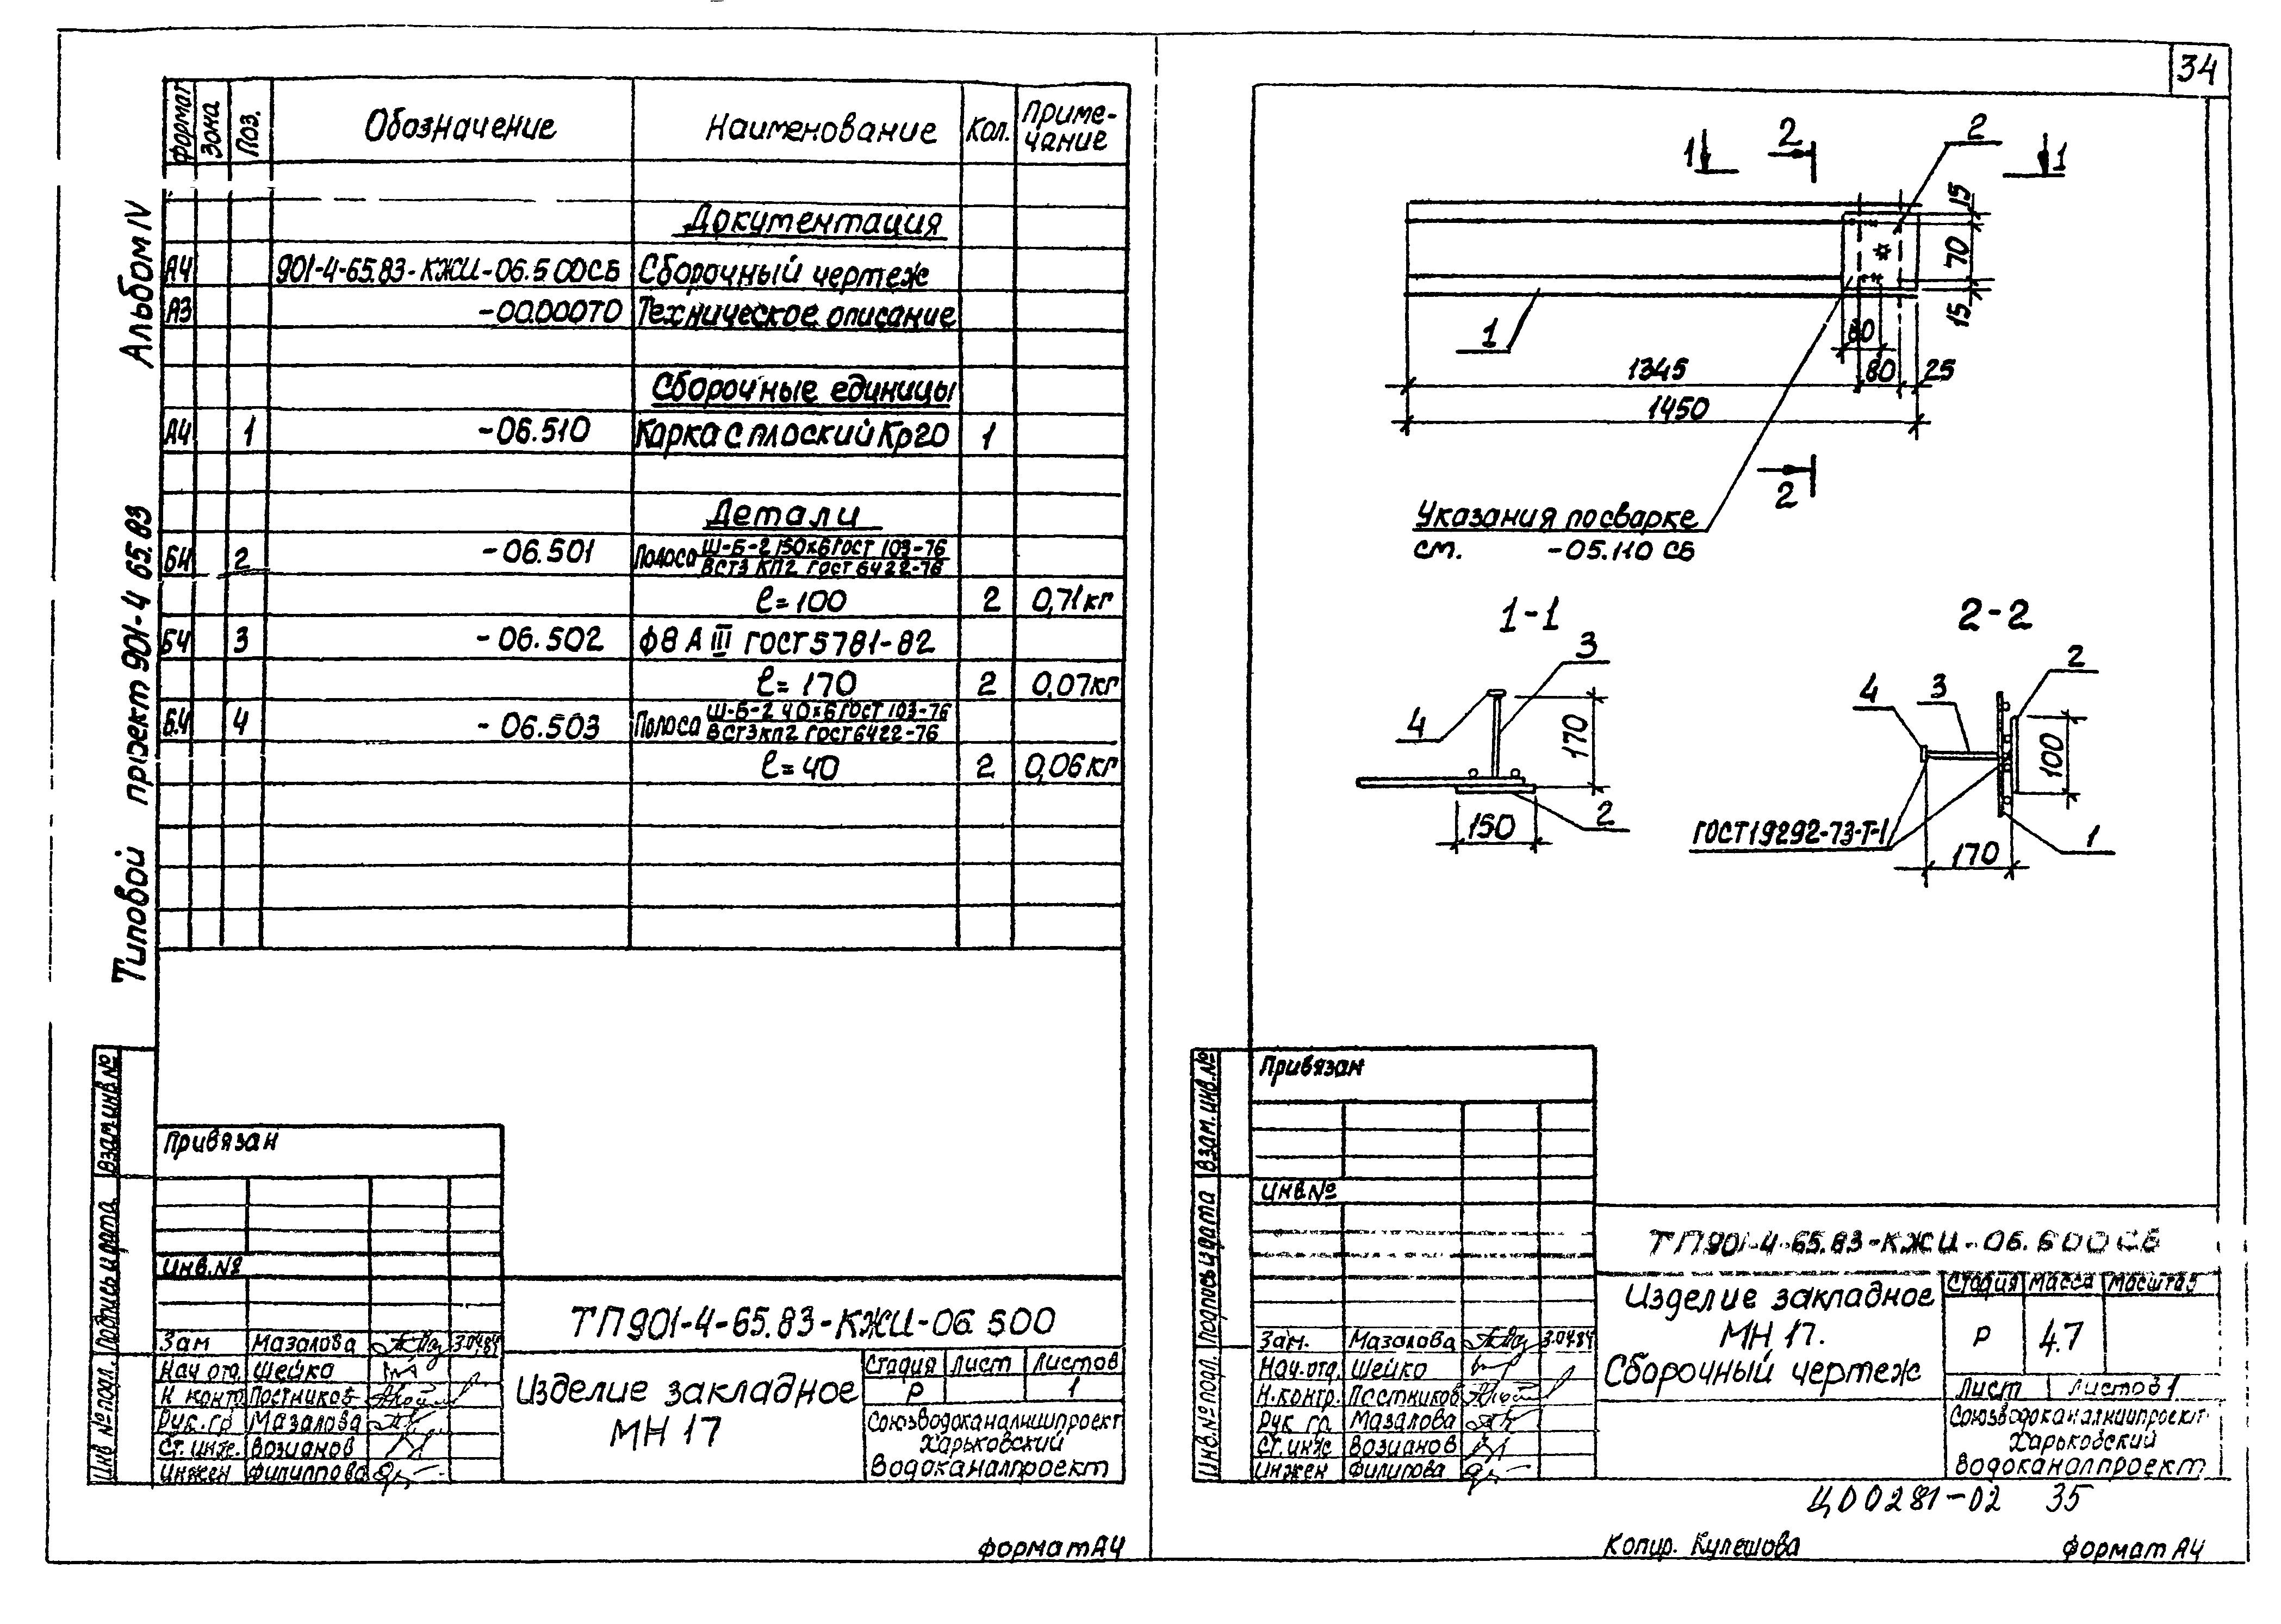 34
Альбом IV
Типовой проект 901-4 65.83
Формат Зона Поз. Обозначение Наименование Кол. Приме-
чание
Документация
А4 901-4-65.83-КЖИ-06.500СБ Сборочный чертеж
А3 -00.000ТО Техническое описание
Сборочные единицы
А4 1 -06.510 Каркас плоский Кр20 1
Детали
Б4 2 -06.501 Полоса Ш-Б-2 150х6 ГОСТ 103-76
ВСТ3 КП2 ГОСТ 6422-76
ℓ=100 2 0,71кг
Б4 3 -06.502 Ф8 А III ГОСТ 5781-82
ℓ=170 2 0,07кг
Б.4 4 -06.503 Полоса Ш-Б-2 40х6 ГОСТ 103-76
ВСТ3 кп2 ГОСТ 6422-76
ℓ=40 2 0,06кг
Взам. инв №
Подпись и дата
Инв № подл.
Привязан
Инв.№
Зам Мазалова 3.04.84
Нач отд. Шейко
Н контр Постников
Рук. гр Мазалова
Ст. инж. Возианов
Инжен Филиппова
ТП901-4-65.83-КЖИ-06 500
Изделие закладное
МН 17
Стадия Лист Листов
Р 1
Союзводоканалниипроект
Харьковский
Водоканалпроект
Формат А4
1 2 2 1
15
70
15
1
80
1345 80 25
1450
2
Указания по сварке
см. -05.110 СБ
1-1
3
4
170
150
2
2-2
2
4 3
100
ГОСТ19292-73-Т-1
170
1
Взам. инв.№
Подпись и дата
Инв.№ подл.
Привязан
Инв.№
Зам. Мазалова 3.04.84
Нач. отд. Шейко
Н. контр. Постников
Рук гр. Мазалова
Ст. инж Возианов
Инжен Филипова
ТП901-4-65.83-КЖИ-06.500СБ
Изделие закладное
МН 17.
Сборочный чертеж
Стадия Масса Масштаб
Р 4.7
Лист Листов 1
Союзводоканалниипроект
Харьковский
Водоканалпроект
Ц00281-02 35
Копир. Кулешова
Формат А4